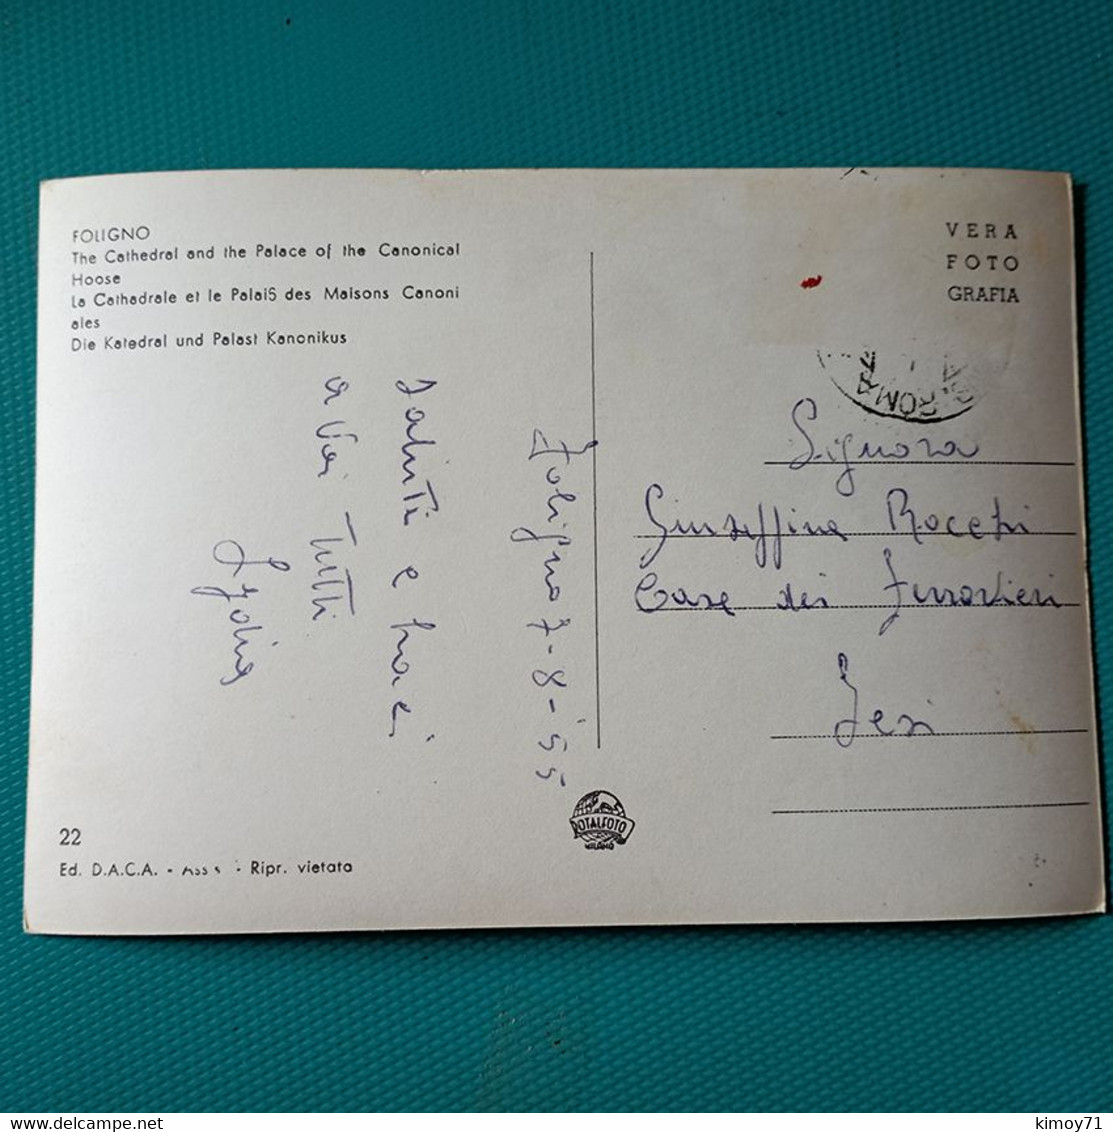 FOLIGNO
The Cathedral and the Palace of the Canonical
Hoose
La Cathedrale et le PalaiS des Maisons Canoni
ales
Die Katedral und Palast Kanonikus
VERA
FOTO
GRAFIA
ROMA
Foligno 7-8-'55
saluti e baci
a Voi Tutti
Signora
Giuseffina Rocchi
Case dei Ferrovieri
Jesi
ROTALFOTO
MILANO
22
Ed. D.A.C.A. - - Ripr. vietata
kimoy71